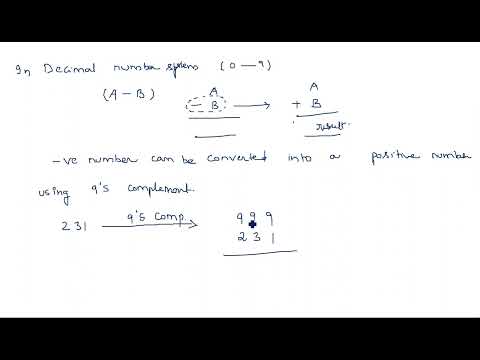 In Decimal number system (0 — 9)
(A - B) A A
- B + B
result
-ve number can be converted into a positive number
using 9's complement
231 9's Comp. 9 9 9
2 3 1